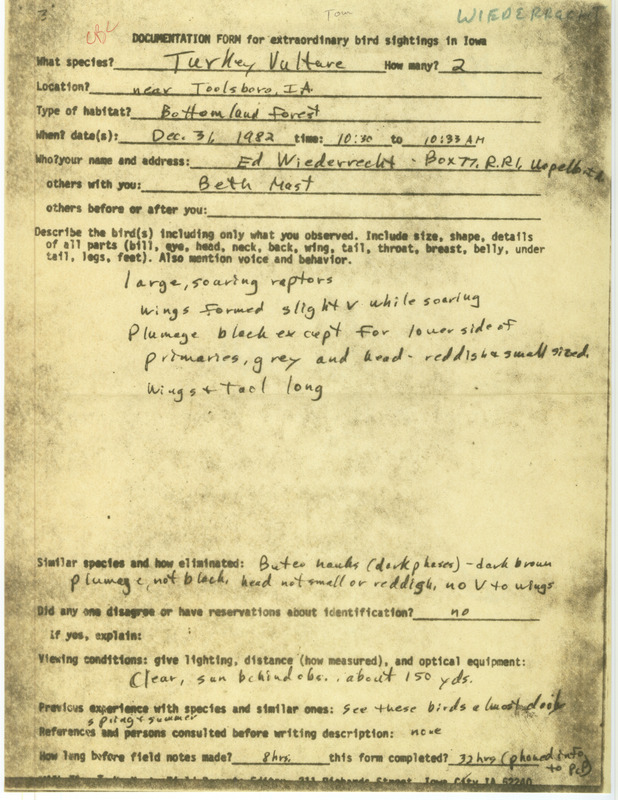 3
Tom
WIEDERRECHT
DOCUMENTATION FORM for extraordinary bird sightings in Iowa
What species? Turkey Vulture How many? 2
Location? near Toolsboro, IA
Type of habitat? Bottomland forest
When? date(s): Dec. 31, 1982 time: 10:30 to 10:33 AM
Who?your name and address: Ed Wiederrecht - Box 77, R.R.1, Wapello
others with you: Beth Mast
others before or after you:
Describe the bird(s) including only what you observed. Include size, shape, details
of all parts (bill, eye, head, neck, back, wing, tail, throat, breast, belly, under
tail, legs, feet). Also mention voice and behavior.
large, soaring raptors
wings formed slight v while soaring
Plumage black except for lower side of
primaries, grey and head - reddish & small sized.
wings + tail long
Similar species and how eliminated: Buteo hawks (dark phases) - dark brown
plumage, not black, head not small or reddish, no V to wings
Did any one disagree or have reservations about identification? no
If yes, explain:
Viewing conditions: give lighting, distance (how measured), and optical equipment:
Clear, sun behind obs. about 150 yds.
Previous experience with species and similar ones: see these birds almost daily
spring + summer
References and persons consulted before writing description: none
How long before field notes made? 8 hrs. this form completed? 32 hrs (phoned info
to
Editor, 211 Richards Street, Iowa City IA 52240